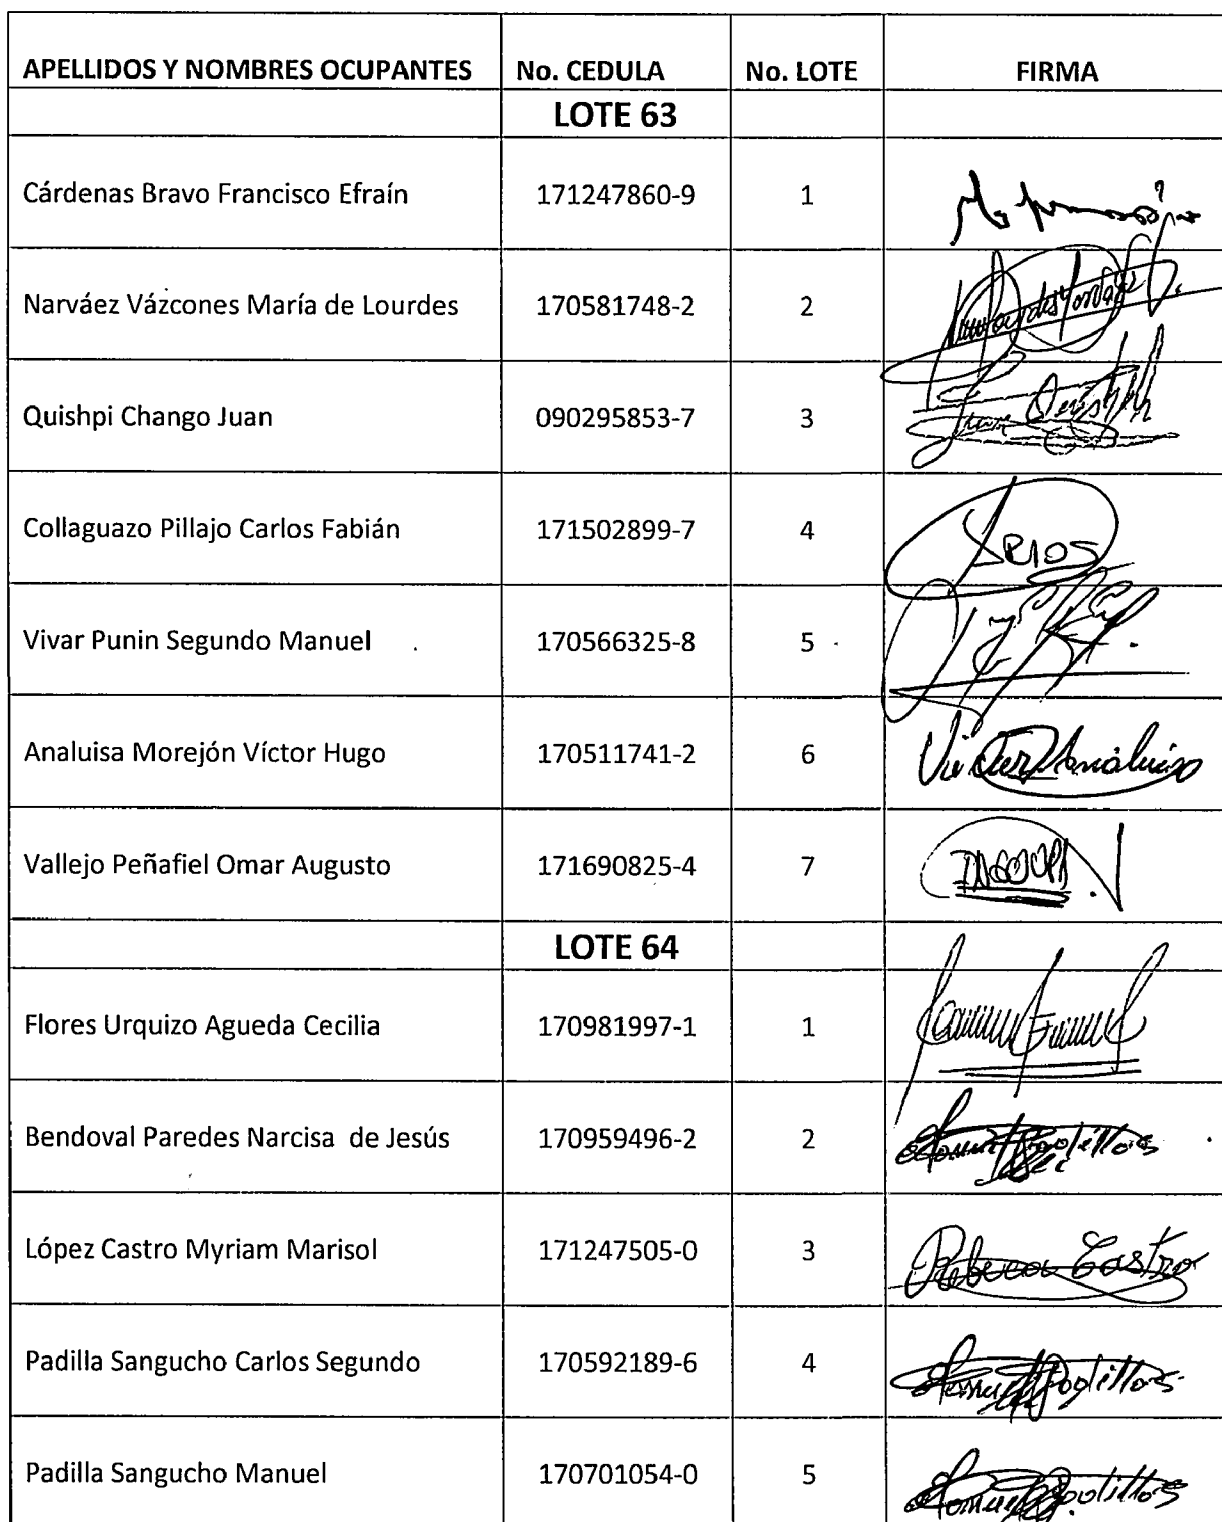 APELLIDOS Y NOMBRES OCUPANTES No. CEDULA No. LOTE FIRMA
LOTE 63
Cárdenas Bravo Francisco Efraín 171247860-9 1
Narváez Vázcones María de Lourdes 170581748-2 2
Quishpi Chango Juan 090295853-7 3
Collaguazo Pillajo Carlos Fabián 171502899-7 4
Vivar Punin Segundo Manuel 170566325-8 5
Analuisa Morejón Víctor Hugo 170511741-2 6 Victor Analuisa
Vallejo Peñafiel Omar Augusto 171690825-4 7
LOTE 64
Flores Urquizo Agueda Cecilia 170981997-1 1
Bendoval Paredes Narcisa de Jesús 170959496-2 2
López Castro Myriam Marisol 171247505-0 3 Rebeca Castro
Padilla Sangucho Carlos Segundo 170592189-6 4
Padilla Sangucho Manuel 170701054-0 5